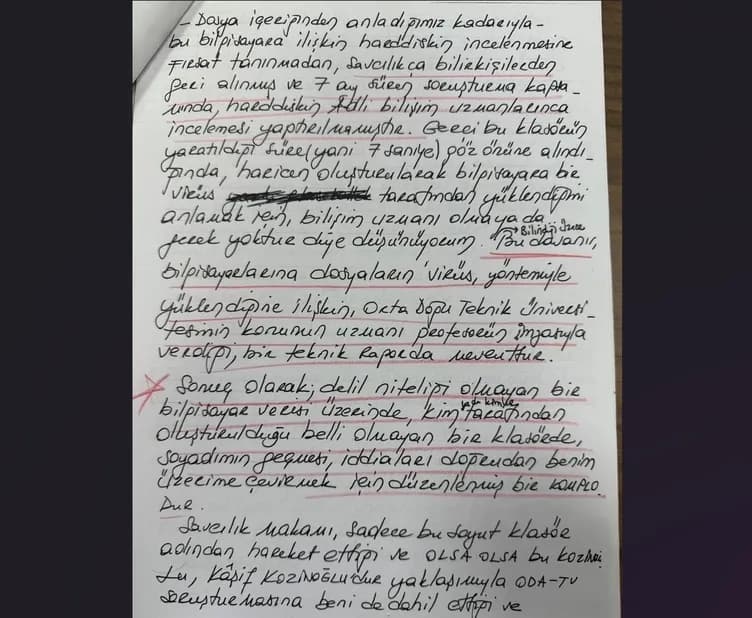 - Dosya içeriğinden anladığımız kadarıyla -
bu bilgisayara ilişkin harddiskin incelenmesine
fırsat tanınmadan, savcılıkça bilirkişilerden
geri alınmış ve 7 ay süren soruşturma kapsa_
mında, harddiskin Adli bilişim uzmanlarınca
incelemesi yaptırılmamıştır. Gerçi bu klasörün
yaratıldığı süre (yani 7 saniye) göz önüne alındı_
ğında, haricen oluşturularak bilgisayara bir
virüs tarafından yüklendiğini
anlamak için, bilişim uzmanı olmaya da
gerek yoktur diye düşünüyorum. Bilindiği üzere
Bu davanın,
bilgisayarlarına dosyaların 'virüs' yöntemiyle
yüklendiğine ilişkin, Orta Doğu Teknik Üniversi_
tesinin konunun uzmanı profesörün imzasıyla
verdiği, bir teknik raporda mevcuttur.
Sonuç olarak; delil niteliği olmayan bir
bilgisayar verisi üzerinde, kim tarafından
oluşturulduğu belli olmayan bir klasörde,
soyadımın geçmesi, iddiaları doğrudan benim
üzerime çevirmek için düzenlenmiş bir KOMPLO
Dur.
Savcılık Makamı, sadece bu soyut klasör
adından hareket ettiği ve OLSA OLSA bu kozinoğ
lu, Kâşif KOZİNOĞLU'dur yaklaşımıyla ODA-TV
soruşturmasına beni de dahil ettiği ve